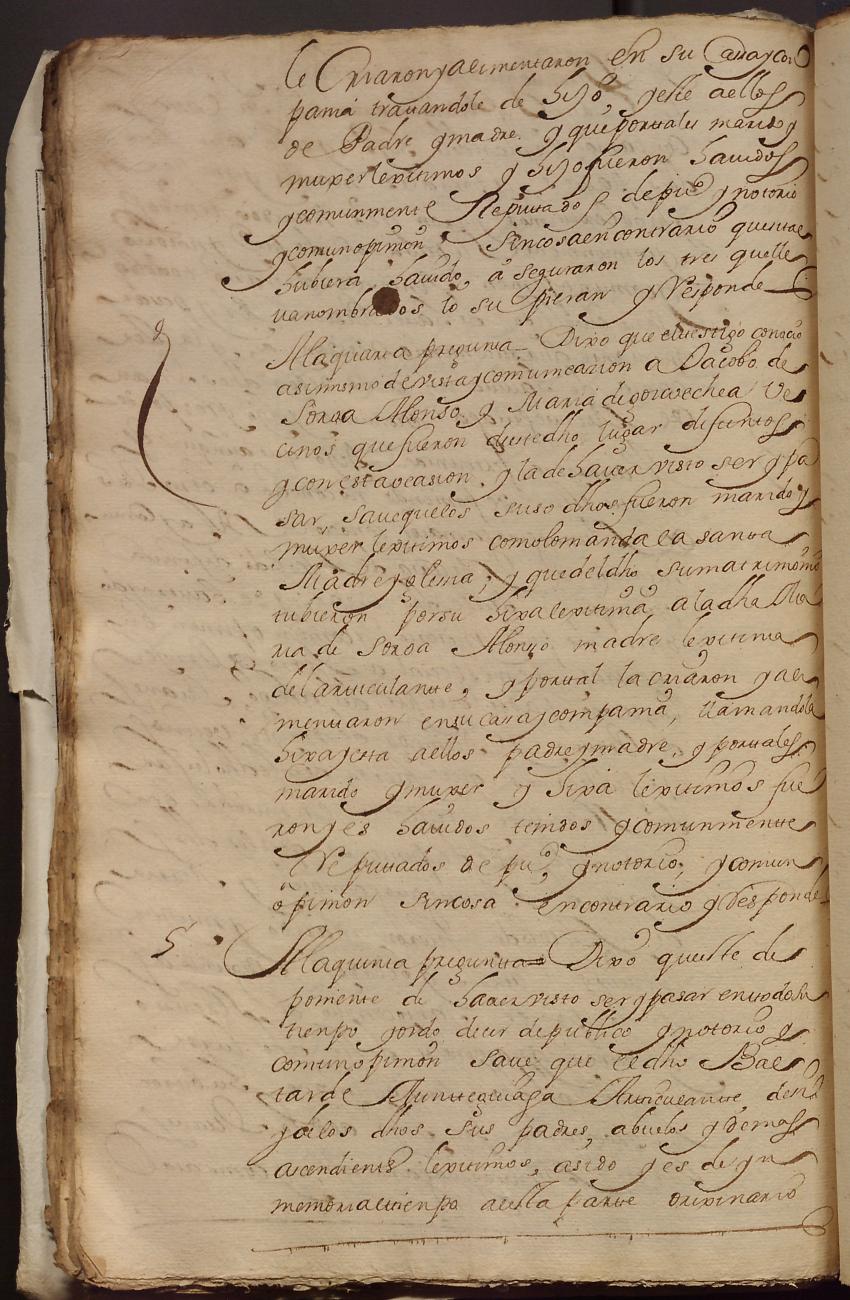 le Criaron y alimentaron en su Cassa y com
pañia tratandole de hijo, y este a ellos
de Padre y madre. y que por tales marido y
muxer lexitimos y hijo fueron havidos
y comunmente Reputados de puco y notorio
y comun opinion, sin cosa en contrario que si tal
hubiera havido, aseguraron los tres que lle
va nombrados lo supieran y Responde
A la quarta pregunta Dixo que el testigo conocio
asimismo de vista y comunicacion a Jacobo de
Soroa Alonso y Maria de Ve
cinos que fueron deste dho lugar difuntos
y con esta ocasion. y la de haver visto ser y pa
sar, save que los suso dhos fueron marido y
muxer lexitimos como lo manda la santa
Madre yglesia, y que del dho su matrimonio
tubieron por su hixa lexitima a la dha Ma
ria de Soroa Alonso madre lexitima
del articulante, y por tal la criaron y ali
mentaron en su casa y compañia, llamandola
hixa y esta a ellos padre y madre, y por tales
marido y muxer y hixa lexitimos fue
ron y es havidos tenidos y comunmente
Reputados de puco, y notorio, y comun
opinion sin cosa en contrario y Responde
5 A la quinta pregunta = Dixo que este de
poniente de haver visto ser y pasar en todo su
tienpo y oydo decir de publico y notorio y
comun opinion save que el dho Bal
tar de Articulante, de su
y de los dhos sus padres, abuelos y demas
ascendientes lexitimos, a sido y es de yn
memorial tienpo a esta parte orixinario